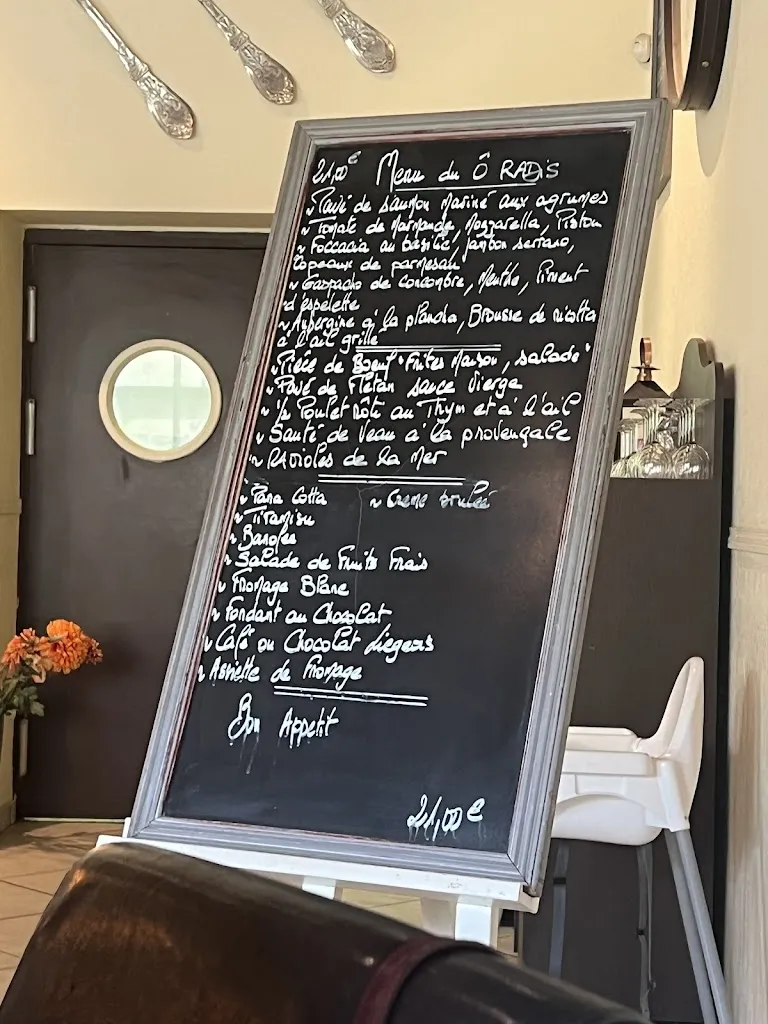 21,00€ Menu du Ô RADIS
~ Pavé de saumon mariné aux agrumes
~ Tomate de Marmande, Mozzarella, Pistou
~ Foccacia au basilic, jambon serrano,
Copeaux de parmesan
~ Gaspacho de concombre, Menthe, Piment
d'espelette
~ Aubergine a' la plancha, Brousse de ricotta
a' l'ail grillé
~ Pièce de Boeuf "Frites Maison, salade"
~ Pavé de Flétan sauce Vierge
~ 1/2 Poulet rôti au Thym et a' l'ail
~ Sauté de Veau a' la provençale
~ Ravioles de la Mer
~ Pana Cotta ~ Creme brulée
~ Tiramisu
~ Banofee
~ Salade de Fruits Frais
~ Fromage Blanc
~ Fondant au Chocolat
~ Café ou Chocolat Liégeois
~ Assiette de Fromage
Bon Appetit
21,00€